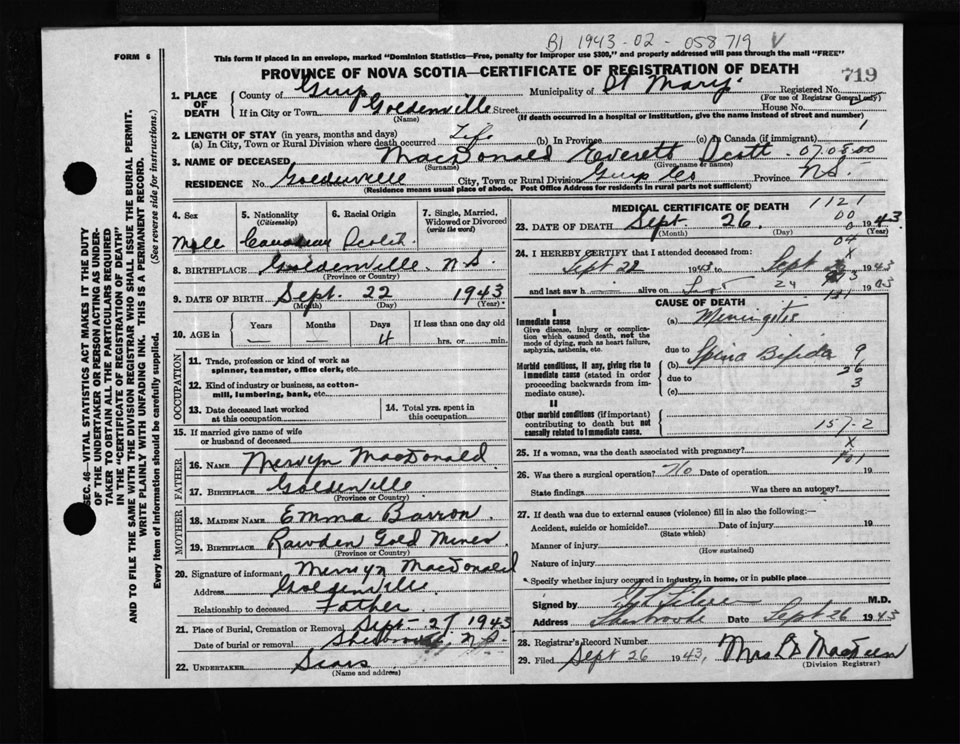 B1 1943-02-058719 V
FORM 6
This form if placed in an envelope, marked "Dominion Statistics—Free, penalty for improper use $300," and properly addressed will pass through the mail "FREE"
PROVINCE OF NOVA SCOTIA—CERTIFICATE OF REGISTRATION OF DEATH
719
1. PLACE OF DEATH
County of Guys Municipality of St Mary's Registered No.
(For use of Registrar General only)
If in City or Town Goldenville Street House No.
(Name) (If death occurred in a hospital or institution, give the name instead of street and number)
2. LENGTH OF STAY (in years, months and days)
(a) In City, Town or Rural Division where death occurred Life (b) In Province (c) In Canada (if immigrant) 1
3. NAME OF DECEASED MacDonald Everett Scott 07.05.00
(Surname) (Given name or names)
RESIDENCE No. Goldenville City, Town or Rural Division Guys Co Province N.S.
(Residence means usual place of abode. Post Office Address for residents in rural parts not sufficient)
4. Sex Male
5. Nationality (Citizenship) Canadian
6. Racial Origin Scotch
7. Single, Married, Widowed or Divorced (write the word)
8. BIRTHPLACE Goldenville N.S.
(Province or Country)
9. DATE OF BIRTH Sept. 22 1943
(Month) (Day) (Year)
10. AGE in Years — Months — Days 4 If less than one day old hrs. or min.
OCCUPATION
11. Trade, profession or kind of work as spinner, teamster, office clerk, etc.
12. Kind of industry or business, as cotton-mill, lumbering, bank, etc.
13. Date deceased last worked at this occupation
14. Total yrs. spent in this occupation
15. If married give name of wife or husband of deceased
FATHER
16. NAME Mervyn MacDonald
17. BIRTHPLACE Goldenville
(Province or Country)
MOTHER
18. MAIDEN NAME Emma Barron
19. BIRTHPLACE Rawden Gold Mines
(Province or Country)
20. Signature of informant Mervyn MacDonald
Address Goldenville
Relationship to deceased Father
21. Place of Burial, Cremation or Removal Sept-27 1943
Date of burial or removal Sherbrooke, N.S.
22. UNDERTAKER Sears
(Name and address)
MEDICAL CERTIFICATE OF DEATH
1121
00
0
04
23. DATE OF DEATH Sept. 26 1943
(Month) (Day) (Year)
24. I HEREBY CERTIFY that I attended deceased from:
Sept 22 1943 to Sept 1943
and last saw h alive on 24 1943
CAUSE OF DEATH
I
Immediate cause
Give disease, injury or complication which caused death, not the mode of dying, such as heart failure, asphyxia, asthenia, etc.
(a) Meningitis
due to
Morbid conditions, if any, giving rise to immediate cause (stated in order proceeding backwards from immediate cause).
(b) Spina Bifida 9
26
due to
(c) 3
II
Other morbid conditions (if important) contributing to death but not causally related to immediate cause.
157-2
25. If a woman, was the death associated with pregnancy? X
101
26. Was there a surgical operation? No Date of operation 19
State findings Was there an autopsy?
27. If death was due to external causes (violence) fill in also the following:—
Accident, suicide or homicide? Date of injury 19
(State which)
Manner of injury
(How sustained)
Nature of injury
Specify whether injury occurred in industry, in home, or in public place
Signed by M.D.
Address Sherbrooke Date Sept 26 1943
28. Registrar's Record Number
29. Filed Sept 26 1943,
(Division Registrar)
SEC. 46—VITAL STATISTICS ACT MAKES IT THE DUTY OF THE UNDERTAKER OR PERSON ACTING AS UNDERTAKER TO OBTAIN ALL THE PARTICULARS REQUIRED IN THE "CERTIFICATE OF REGISTRATION OF DEATH" AND TO FILE THE SAME WITH THE DIVISION REGISTRAR WHO SHALL ISSUE THE BURIAL PERMIT.
WRITE PLAINLY WITH UNFADING INK. THIS IS A PERMANENT RECORD.
Every item of information should be carefully supplied. (See reverse side for instructions.)